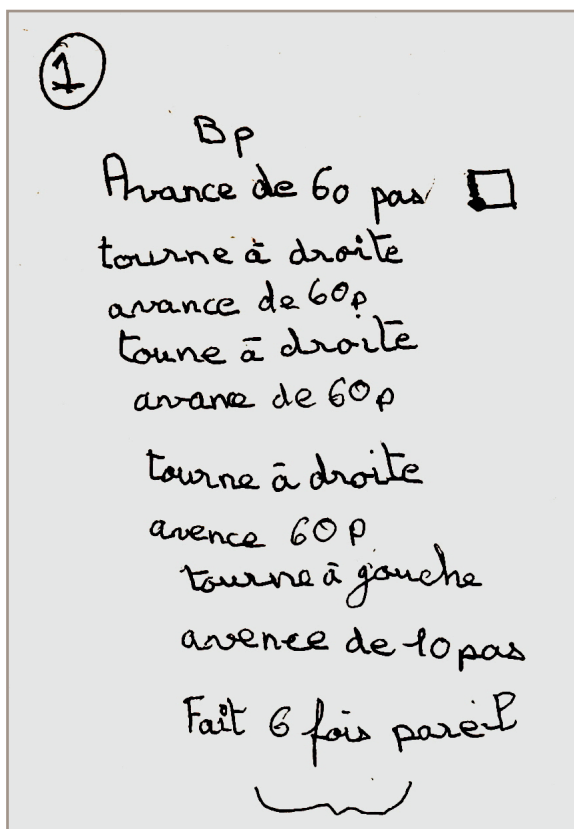 1
Bp
Avance de 60 pas
tourne à droite
avance de 60p
toune à droite
avane de 60p
tourne à droite
avence 60p
tourne à gouche
avence de 10 pas
Fait 6 fois pareil